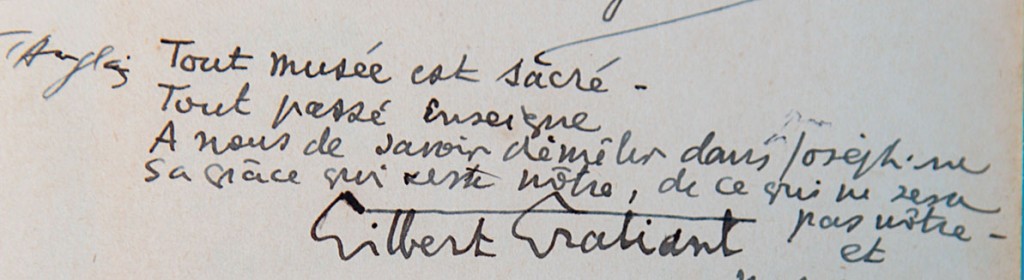 Tout musée est sacré -
Tout passé enseigne
A nous de savoir démêler dans Joséphine
sa grâce qui reste nôtre, de ce qui ne sera
pas nôtre -
Gilbert Gratiant
et